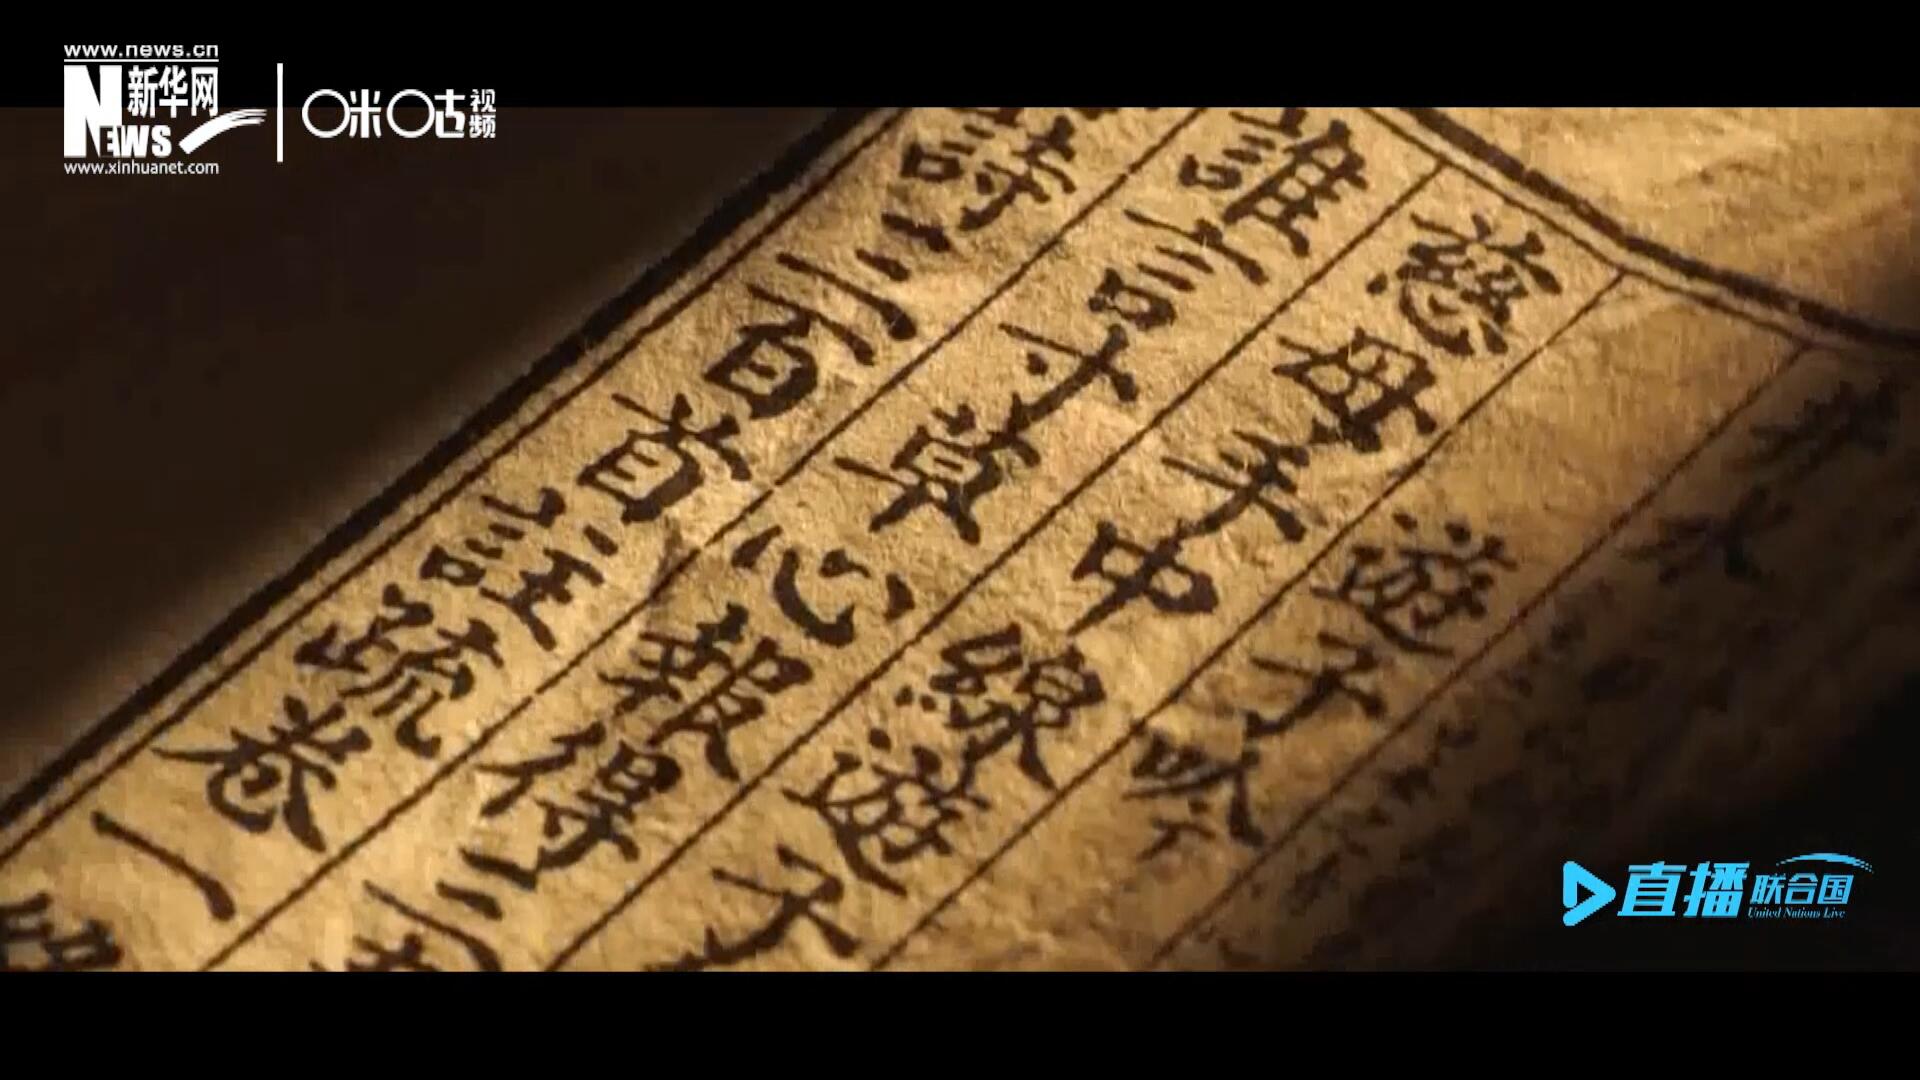 www.news.cn
NEWS 新华网
www.xinhuanet.com
咪咕视频
遊子吟
慈母手中線遊子
誰言寸草心報得三
詩三百首註疏卷一
直播联合国
United Nations Live